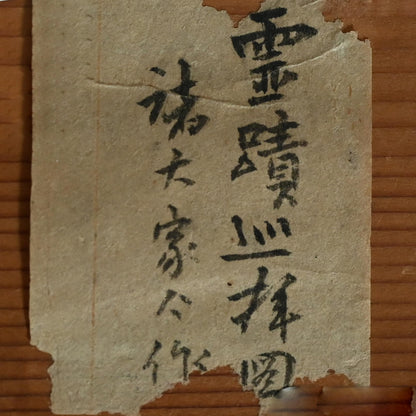 霊蹟巡拝図
諸大家合作